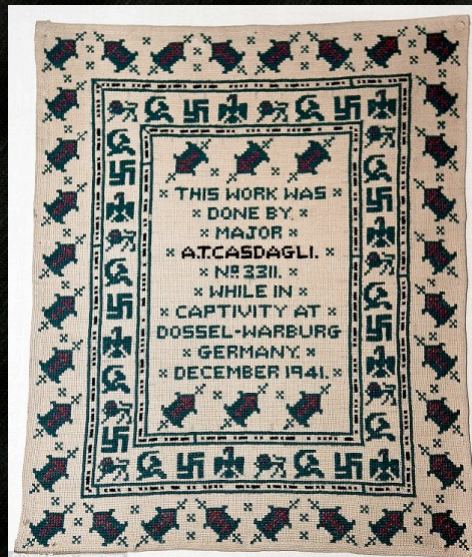 THIS WORK WAS
DONE BY
MAJOR
A.T.CASDAGLI.
Nº 3311.
WHILE IN
CAPTIVITY AT
DOSSEL-WARBURG
GERMANY.
DECEMBER 1941.